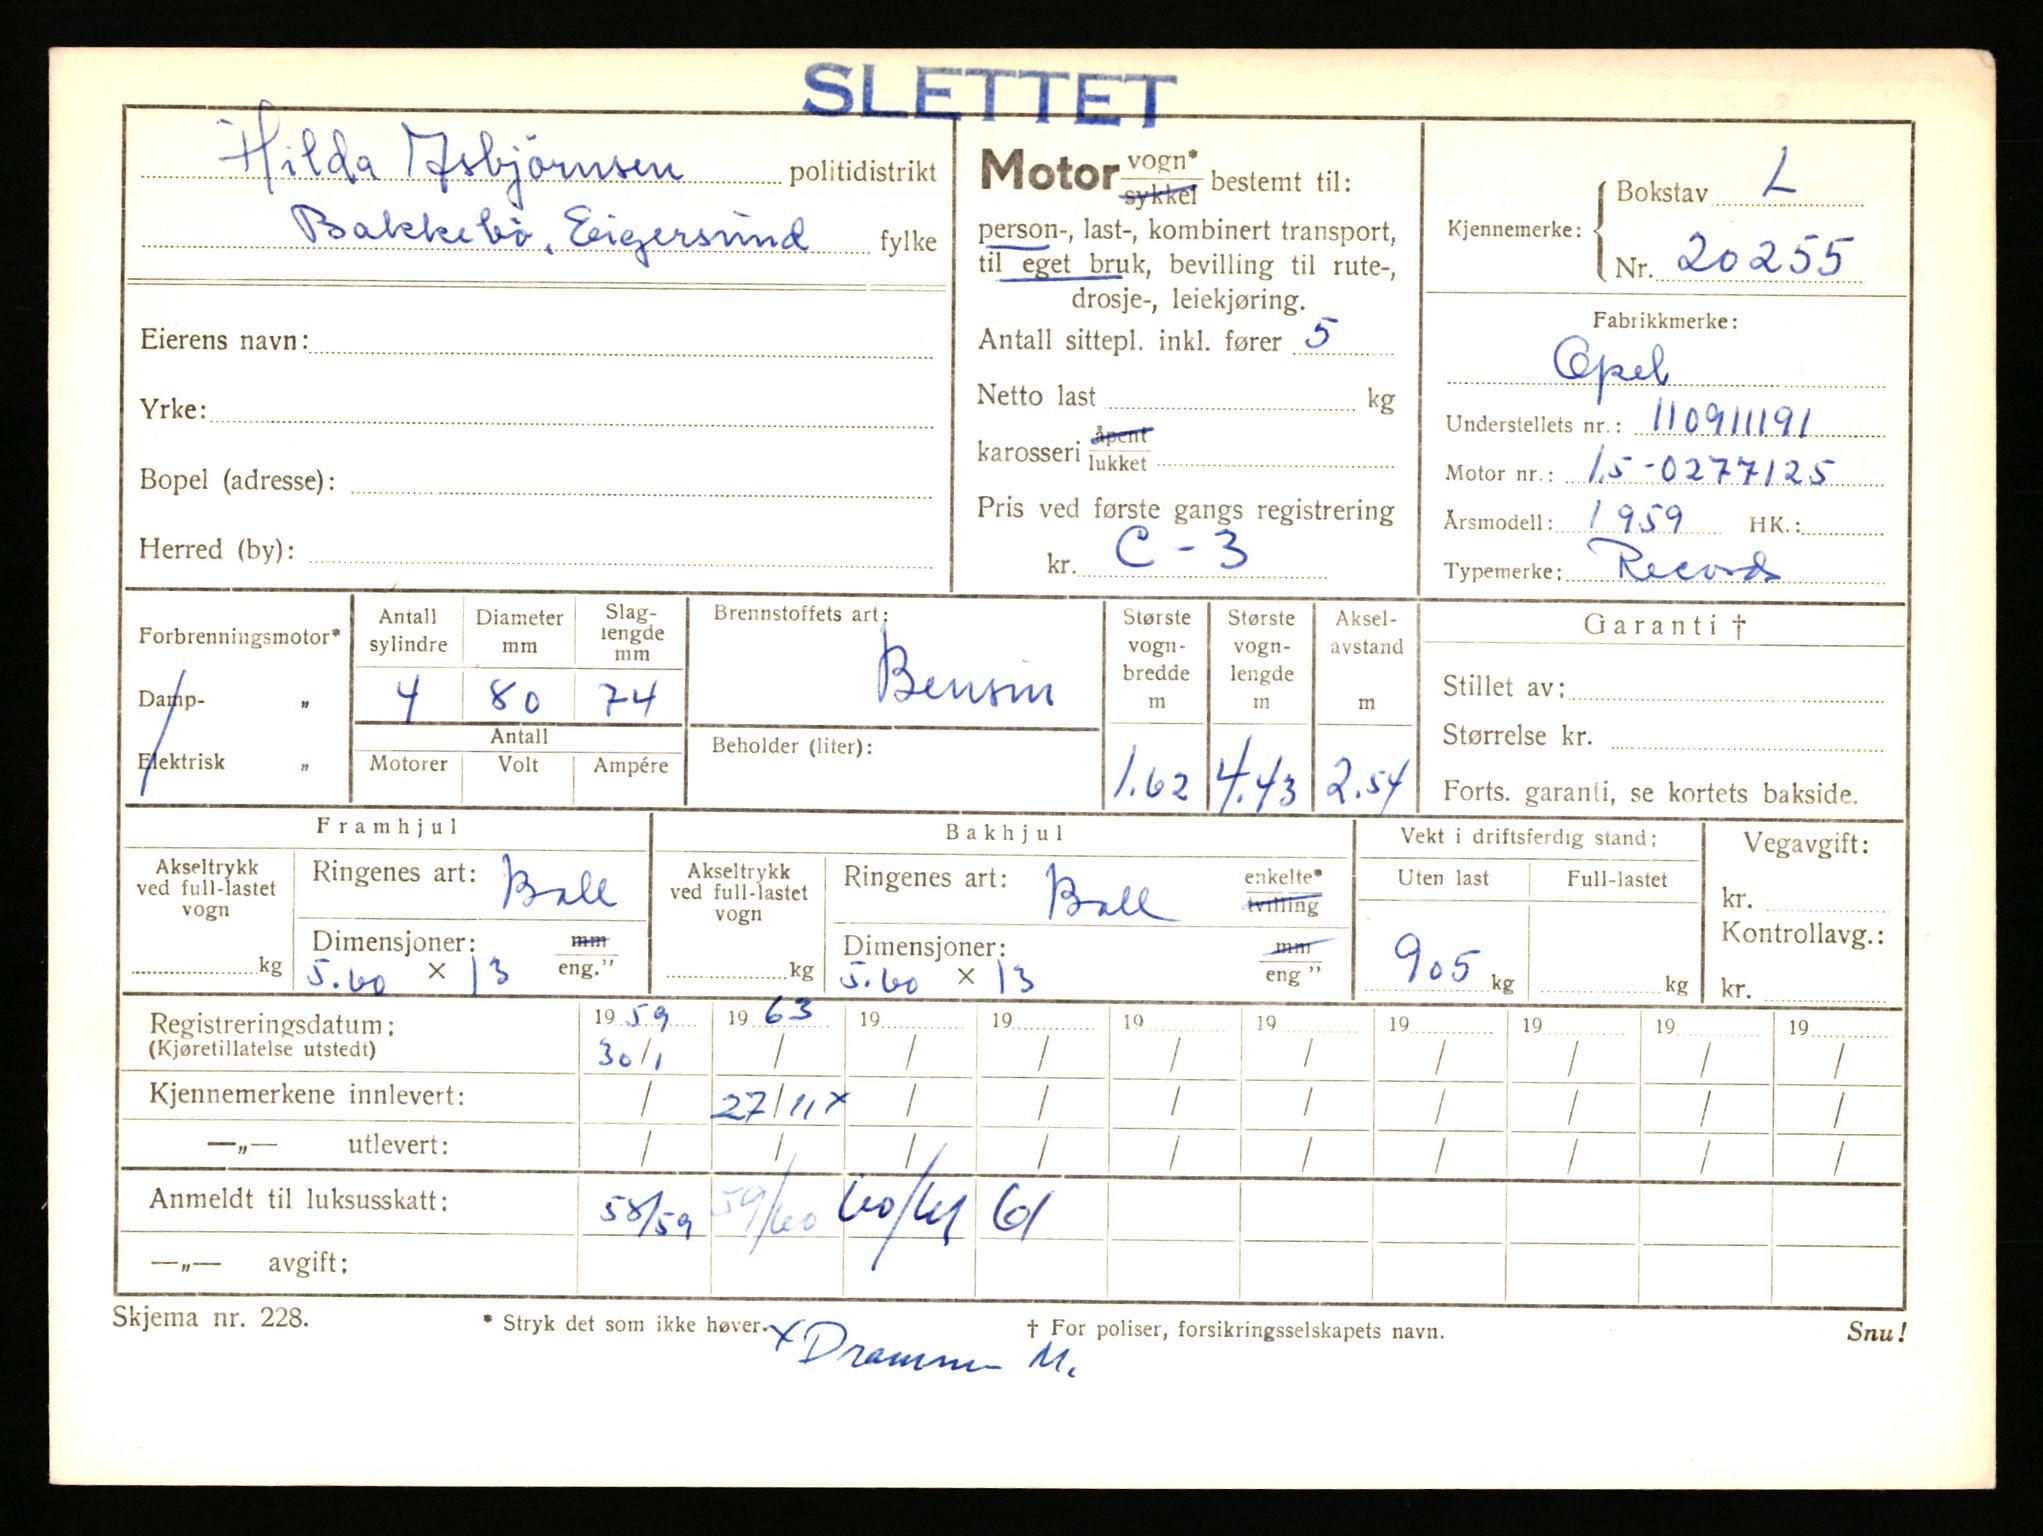 SLETTET
Hilda Asbjörnsen politidistrikt
Bakkebö, Eigersund fylke
Eierens navn:
Yrke:
Bopel (adresse):
Herred (by):
Motor vogn* sykkel bestemt til:
person-, last-, kombinert transport,
til eget bruk, bevilling til rute-,
drosje-, leiekjøring.
Antall sittepl. inkl. fører 5
Netto last kg
karosseri åpent lukket
Pris ved første gangs registrering
kr. C-3
Kjennemerke: Bokstav L
Nr. 20255
Fabrikkmerke:
Opel
Understellets nr.: 110911191
Motor nr.: 1.5-0277125
Årsmodell: 1959 HK.:
Typemerke: Record
Forbrenningsmotor*
Damp- „
Elektrisk „
Antall sylindre
4
Diameter mm
80
Slag-lengde mm
74
Antall
Motorer Volt Ampére
Brennstoffets art:
Bensin
Beholder (liter):
Største vogn-bredde m
1.62
Største vogn-lengde m
4.43
Aksel-avstand m
2.54
Garanti †
Stillet av:
Størrelse kr.
Forts. garanti, se kortets bakside.
Framhjul
Akseltrykk ved full-lastet vogn
kg
Ringenes art: Ball
Dimensjoner: mm
5.60 × 13 eng."
Bakhjul
Akseltrykk ved full-lastet vogn
kg
Ringenes art: Ball enkelte* tvilling
Dimensjoner: mm
5.60 × 13 eng "
Vekt i driftsferdig stand:
Uten last Full-lastet
905 kg kg
Vegavgift:
kr.
Kontrollavg.:
kr.
Registreringsdatum: 1959 1963 19 19 19 19 19 19 19 19
(Kjøretillatelse utstedt) 30/1 / / / / / / / / /
Kjennemerkene innlevert: / 27/11 x / / / / / / / /
—„— utlevert: / / / / / / / / / /
Anmeldt til luksusskatt: 58/59 59/60 60/61 61
—„— avgift:
Skjema nr. 228. * Stryk det som ikke høver. † For poliser, forsikringsselskapets navn. Snu!
x Drammen M.